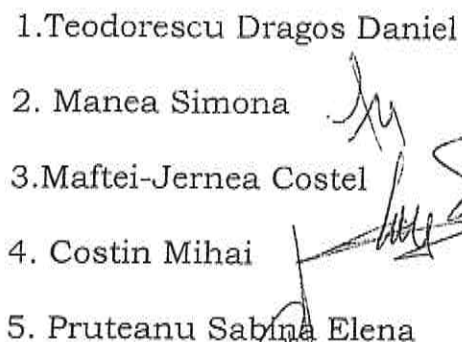 1.Teodorescu Dragos Daniel
2. Manea Simona
3.Maftei-Jernea Costel
4. Costin Mihai
5. Pruteanu Sabina Elena